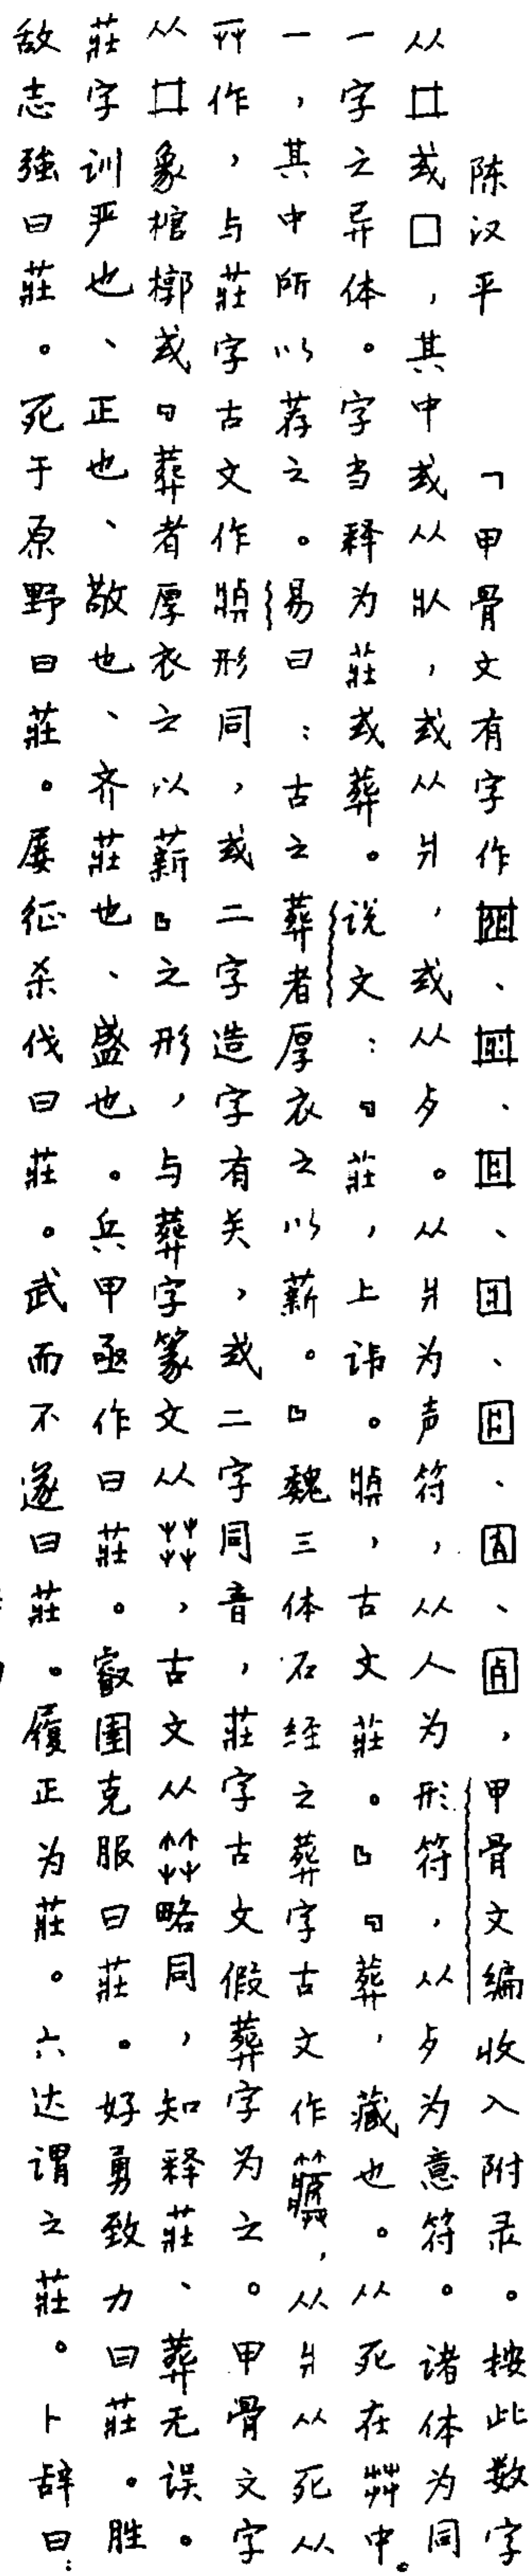 陈汉平　「甲骨文有字作、、、、、、，甲骨文编收入附录。按此数字
从囗或口，其中或从㽵，或从爿，或从歺。从爿为声符，从人为形符，从歺为意符。诸体为同
一字之异体。字当释为莊或葬。说文：『莊，上讳。，古文莊。』『葬，藏也。从死在茻中。
一，其中所以荐之。易曰：古之葬者厚衣之以薪。』魏三体石经之葬字古文作，从爿从死从
艸作，与莊字古文作形同，或二字造字有关，或二字同音，莊字古文假葬字为之。甲骨文字
从象棺槨或『葬者厚衣之以薪』之形，与葬字篆文从茻，古文从略同，知释莊、葬无误。
莊字训严也、正也、敬也、齐莊也、盛也。兵甲亟作曰莊。叡圉克服曰莊。好勇致力曰莊。胜
敌志強曰莊。死于原野曰莊。屡征杀伐曰莊。武而不遂曰莊。履正为莊。六达谓之莊。卜辞曰：